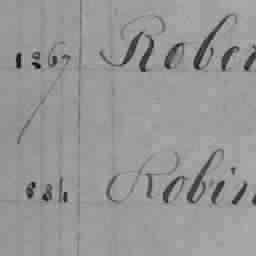 1267 Rober
884 Robin